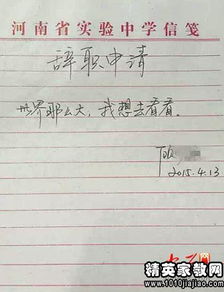 河南省实验中学信笺
辞职申请
世界那么大，我想去看看。
2015.4.13.
精英家教网
www.1010jiajiao.com